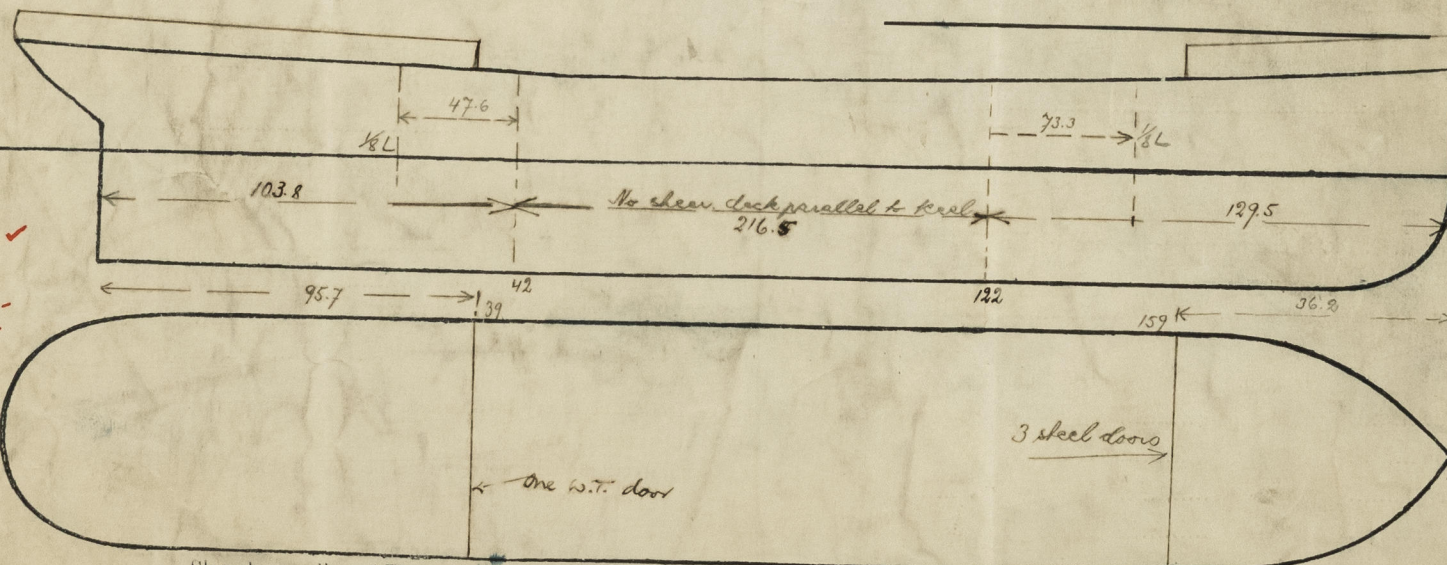 47.6
73.3
⅛L
⅛L
103.8
No sheer. deck parallel to keel
216.5
129.5
95.7
42
39
122
159
36.2
3 steel doors
One W.T. door